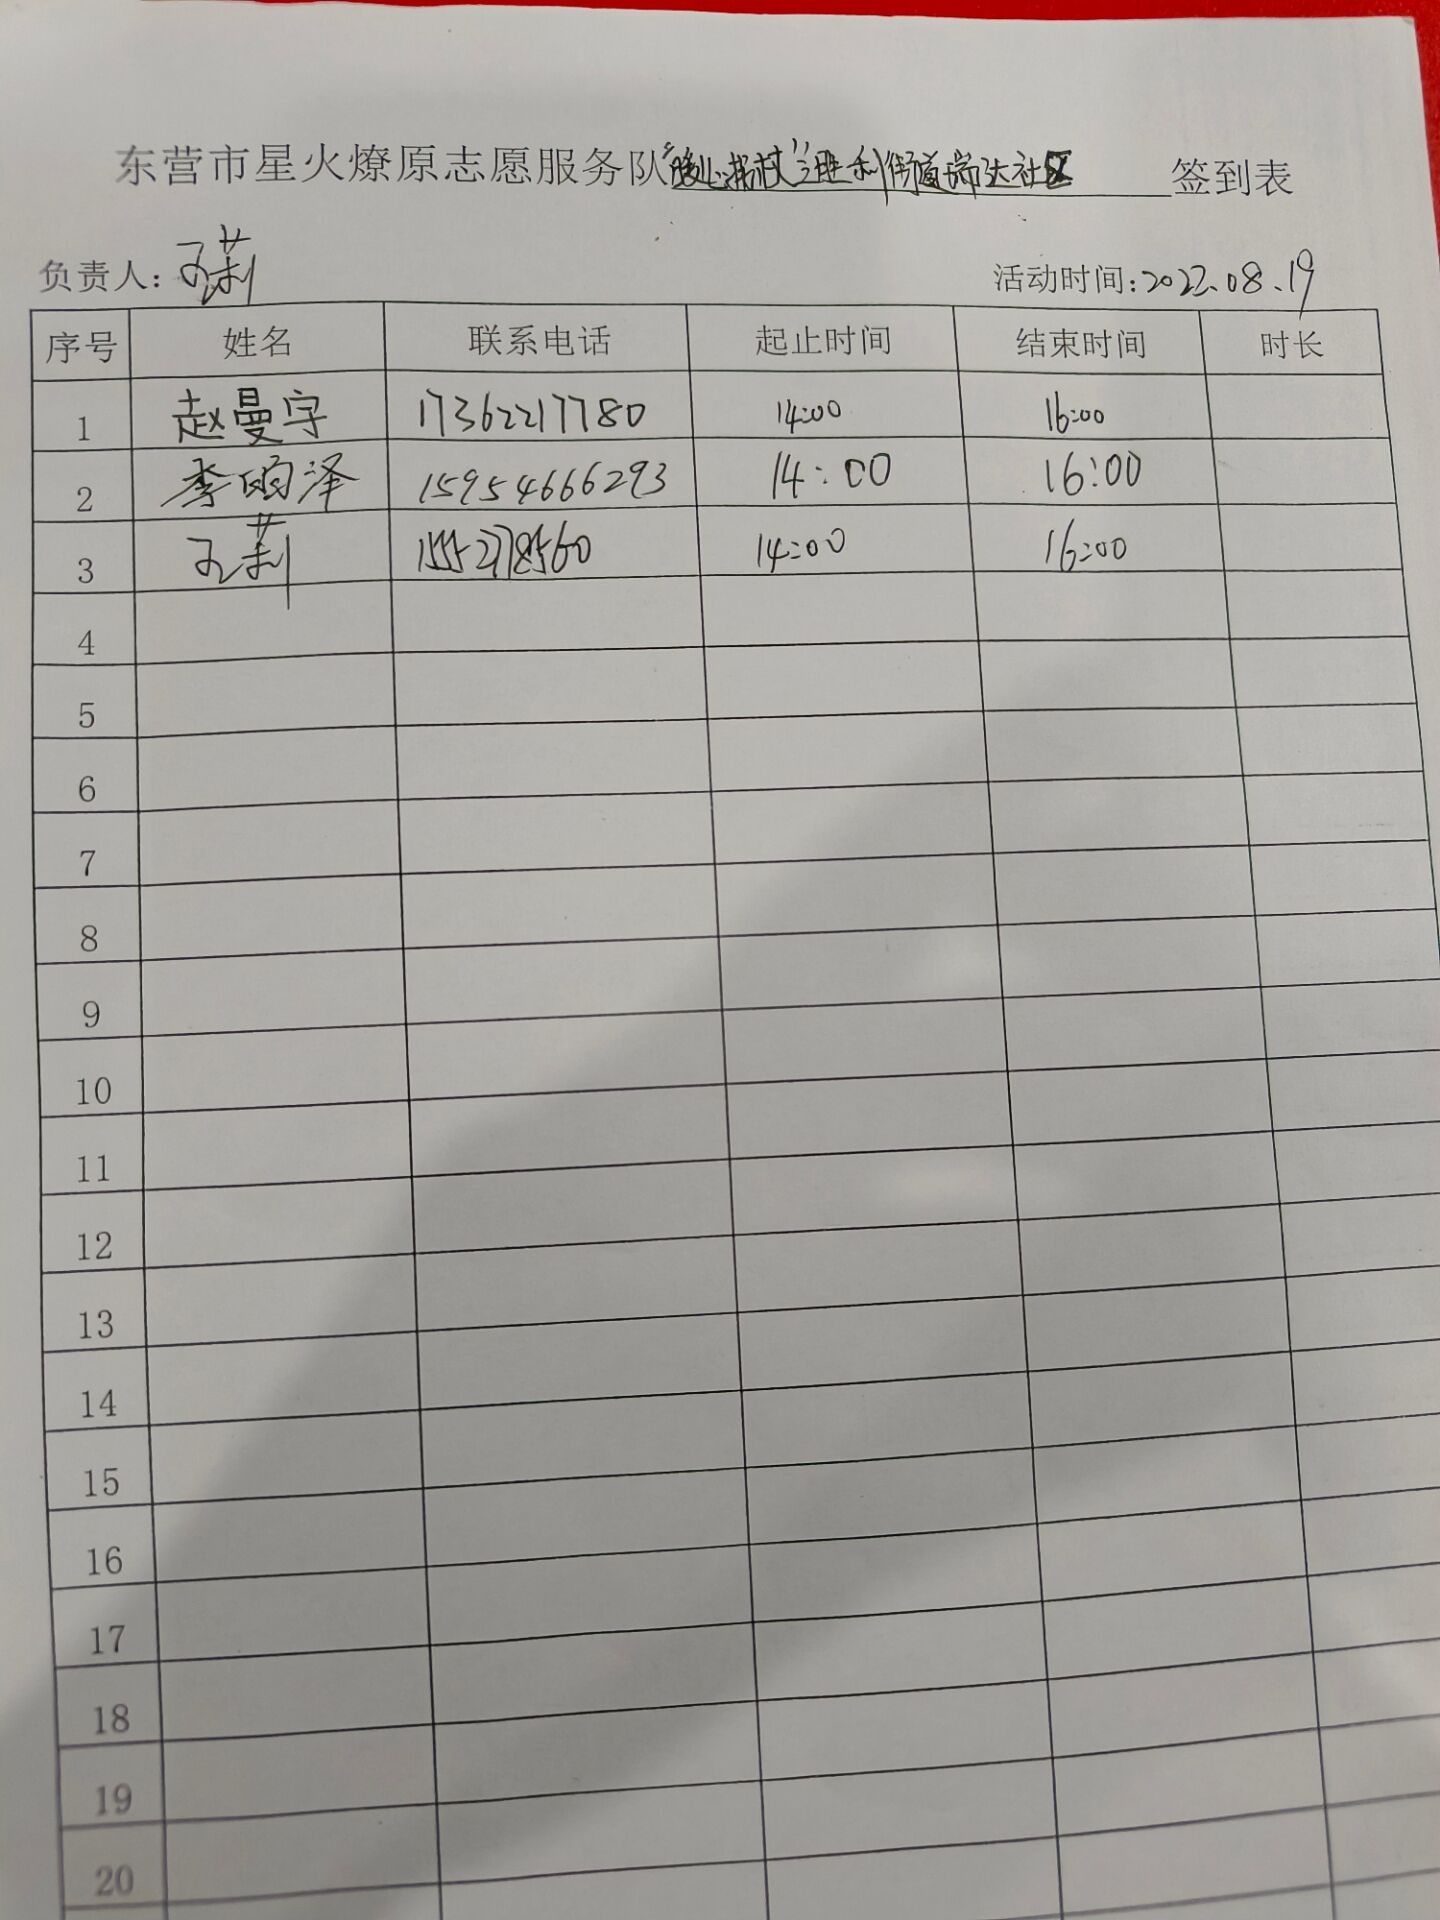 东营市星火燎原志愿服务队“暖心拐杖”之胜利街道瑞达社区 签到表
负责人：孔莉 活动时间：2023.08.19
序号 姓名 联系电话 起止时间 结束时间 时长
1 赵曼宇 17362217780 14:00 16:00
2 李雨泽 15954666293 14:00 16:00
3 孔莉 14:00 16:00
4
5
6
7
8
9
10
11
12
13
14
15
16
17
18
19
20